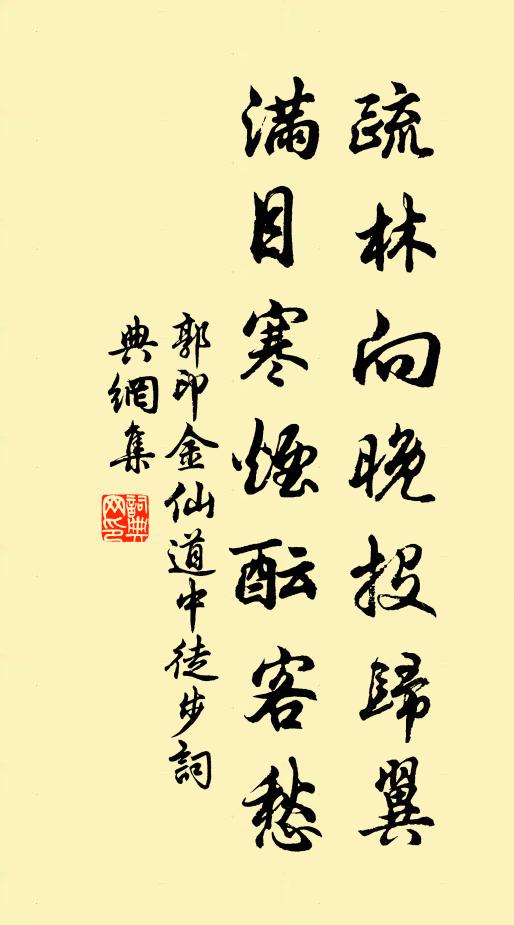 疏林向晚投歸翼
滿目寒煙酝客愁
郭印金仙道中徒步詞
典網集
詞典
网印